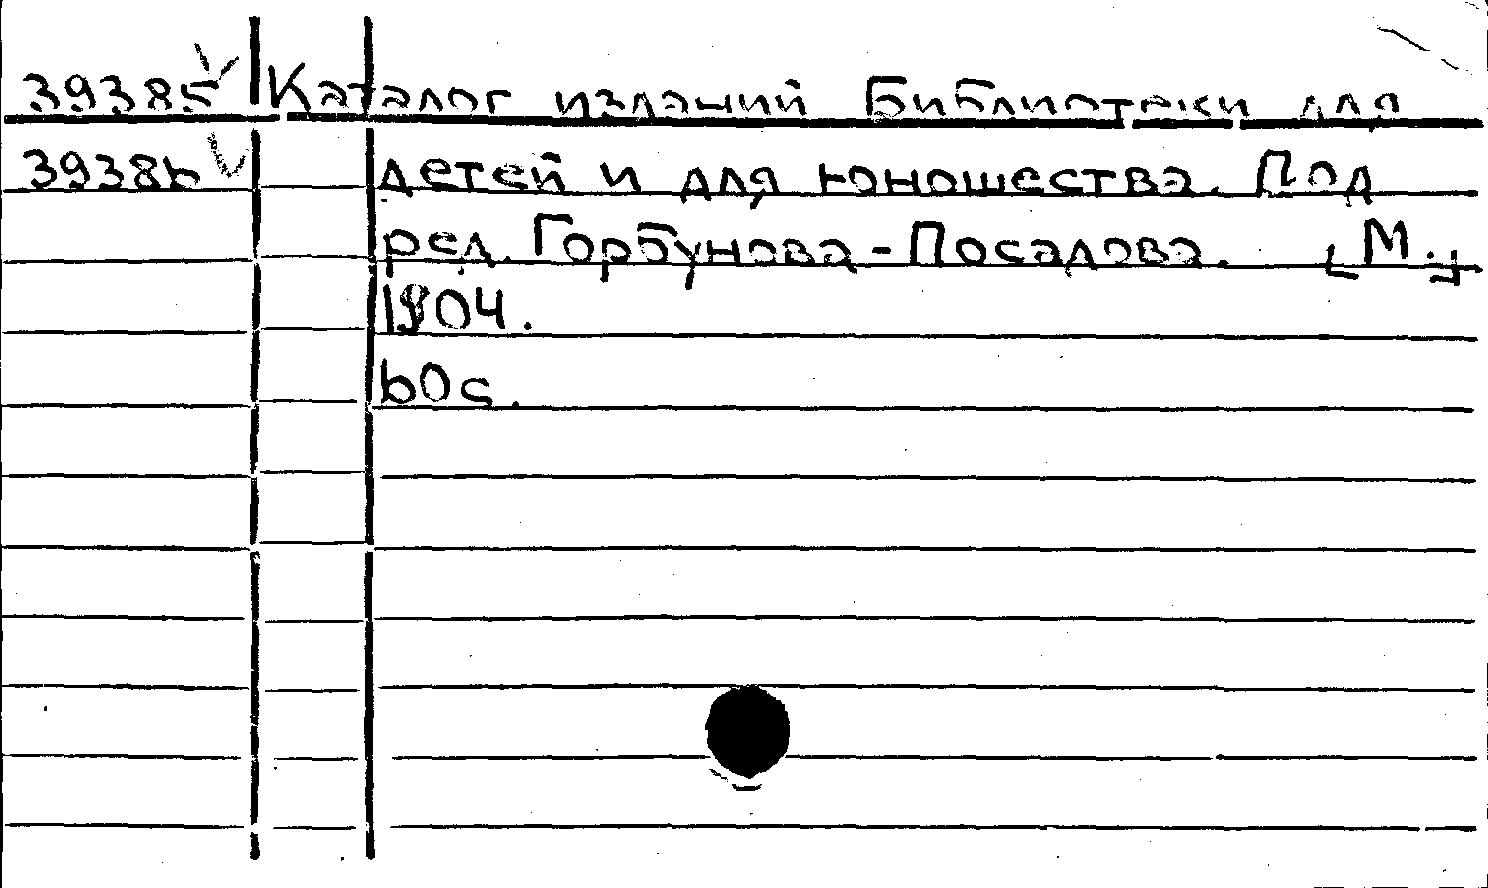 39385 Каталог изданий Библиотеки для
39386 детей и для юношества. Под
ред. Горбунова-Посадова. [М.]
1904.
60с.